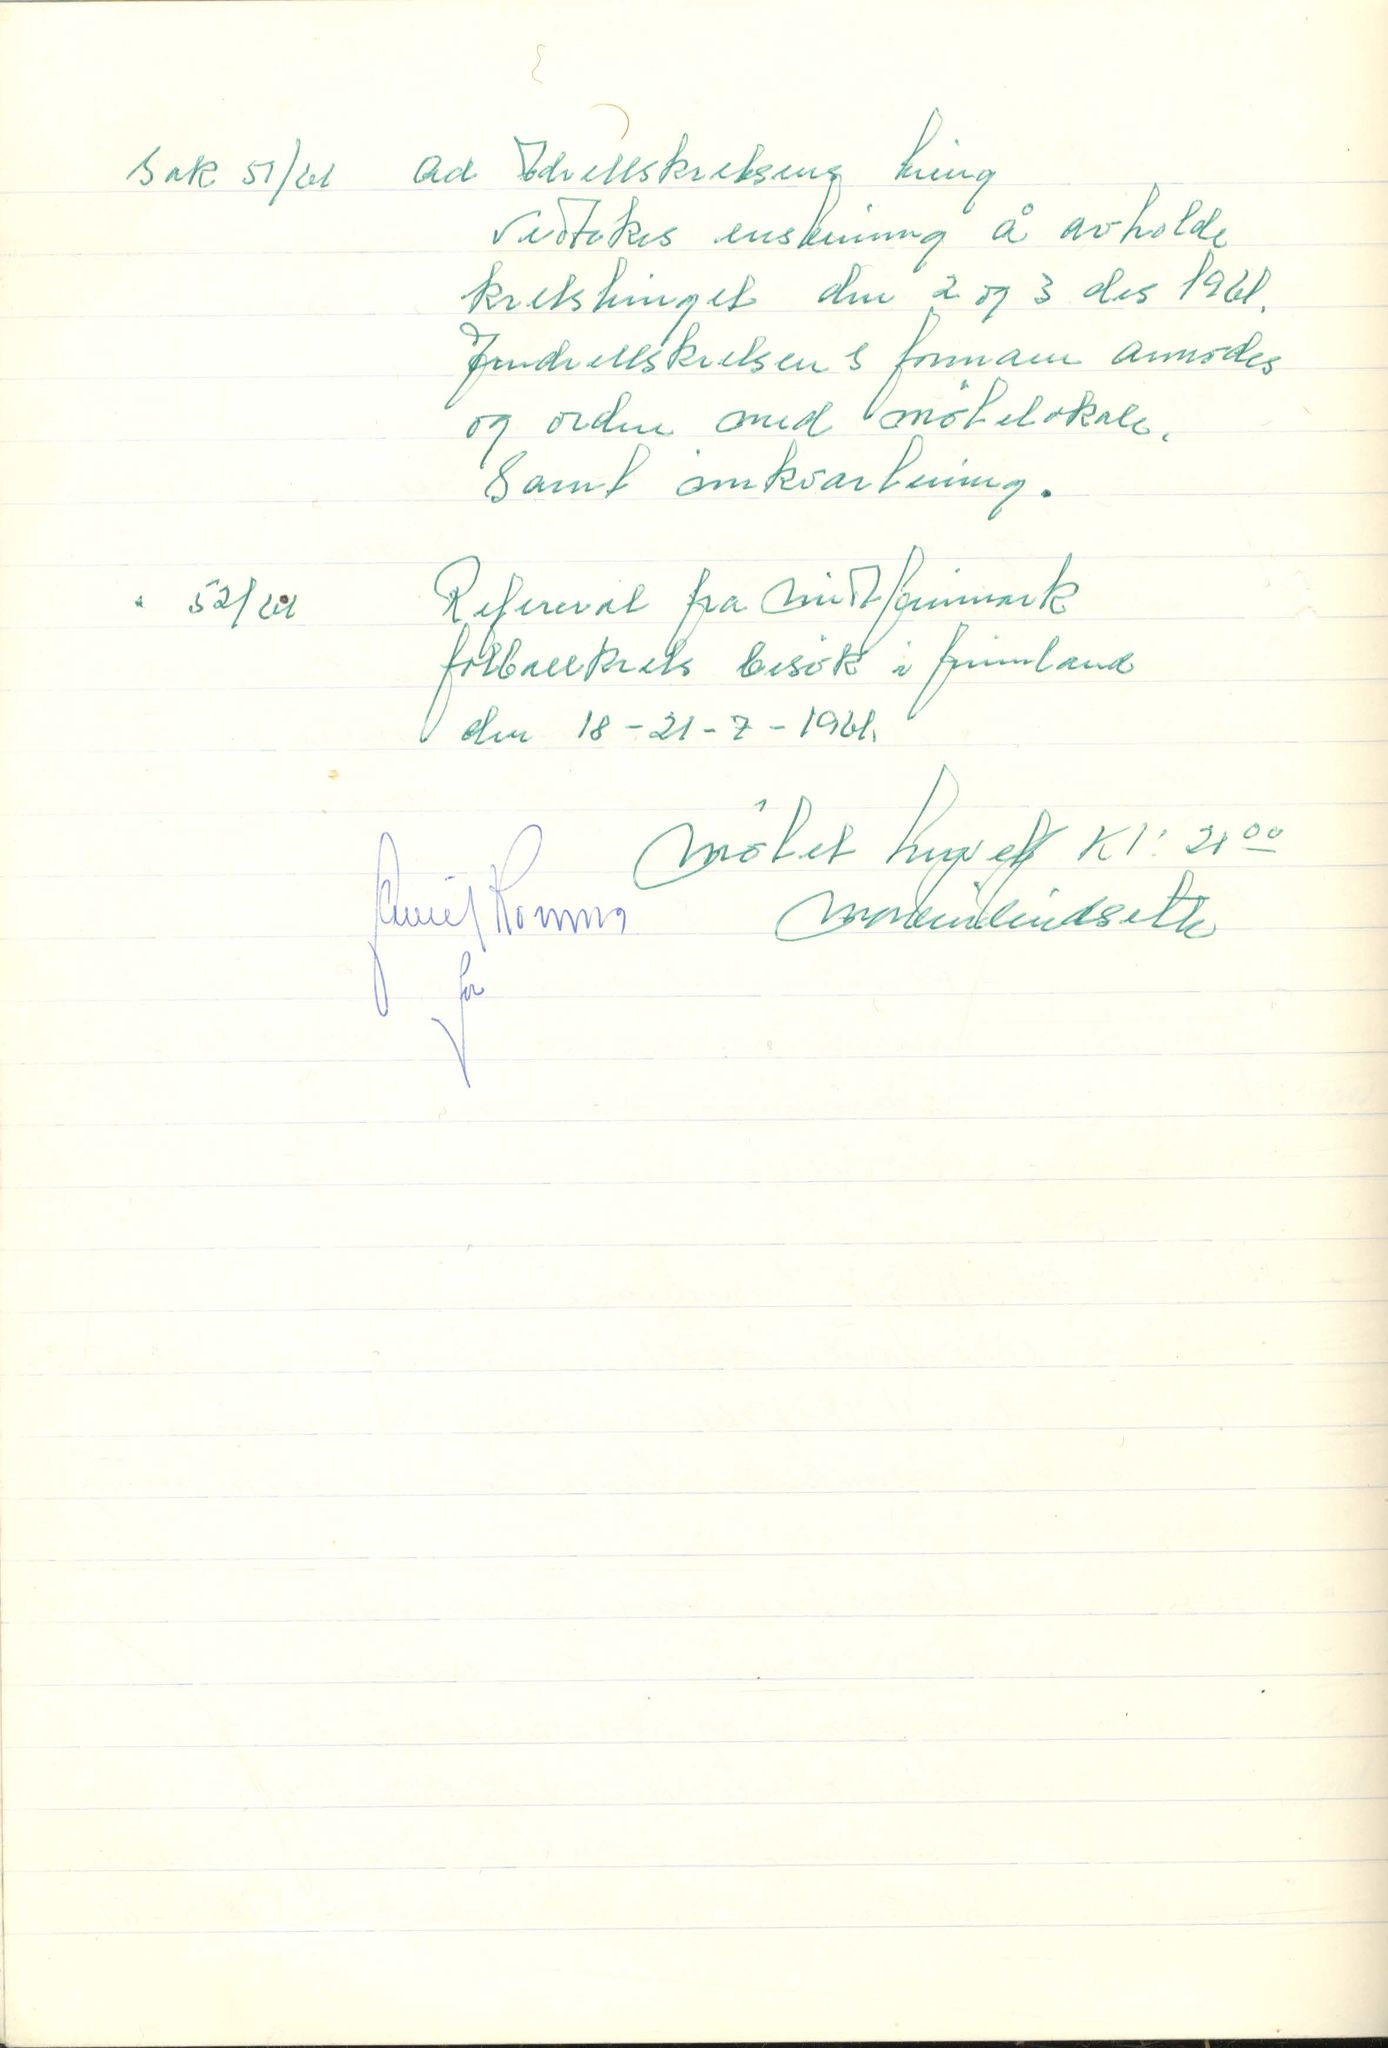 Sak 51/61 ad Idrettskretsens ting
Vedtokes enstemmig å avholde
kretstinget den 2 og 3 des 1961.
formann anmodes
og ordne med mötelokale.
Samt innkvartering.
" 52/61 Refererat fra Midtfinnmark
fotballkrets besök i finnland
den 18-21-7-1961.
Mötet hevet Kl: 21 00